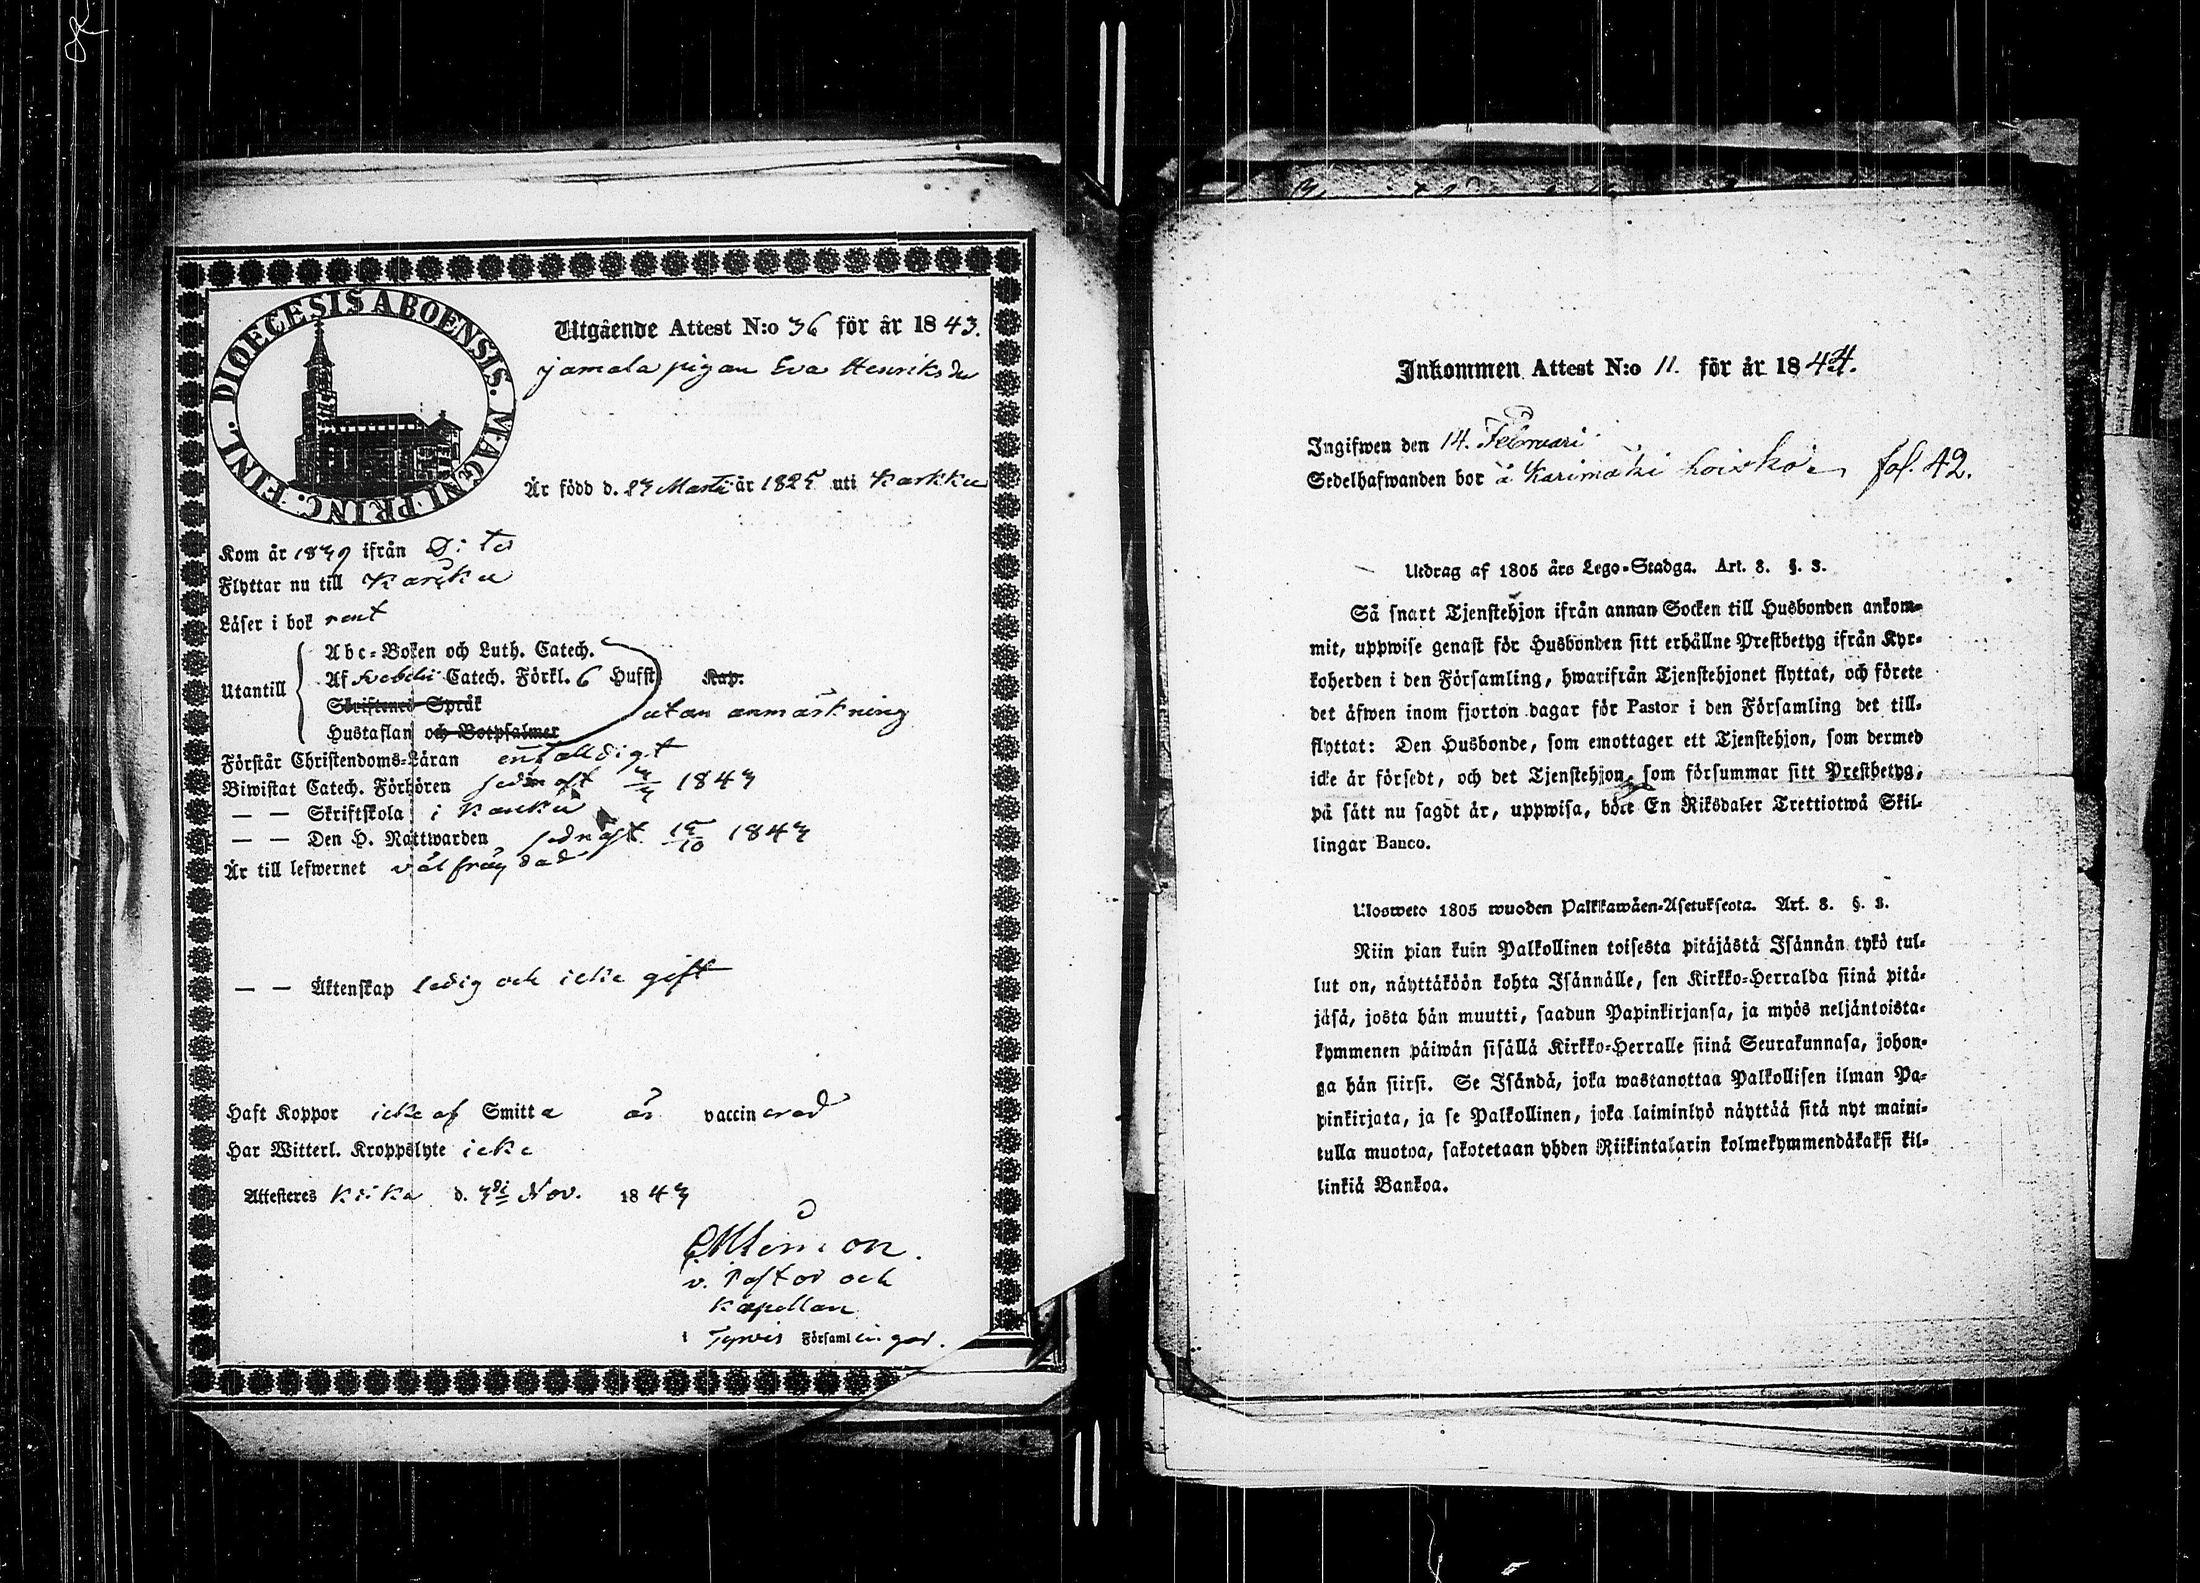 DIOECESIS ABOENSIS. MAGNI PRINC. FINL.
Utgående Attest N:o 36 för år 1843.
pigan Eva Henriksdr
Är född d. Marti år 1825 uti Karkku
Kom år 1839 ifrån Dito
Flyttar nu till Karkku
Läser i bok rent
Utantill
Abc-Boken och Luth. Catech.
Af Svebelii Catech. Förkl. 6 Hufst. Kap.
Skriftenes Språk
Hustaflan och Botpsalmer
utan anmärkning
Förstår Christendoms-Läran enfalldigt
Biwistat Catech. Förhören sednast 1843
— — Skriftskola i Karkku
— — Den H. Nattwarden sednast 15/10 1843
Är till lefwernet välfräjdad
— — Äktenskap ledig och icke gift
Haft Koppor icke af Smitta är vaccinerad
Har Witterl. Kroppslyte icke
Attesteres Kiika d. Nov. 1843
v. Pastor och
Kapellan
i Tyrvis Församlingar.
Inkommen Attest N:o 11. för år 1844.
Ingifwen den 14. Februari
Sedelhafwanden bor å Karimäki Loisko fol. 42.
Utdrag af 1805 års Lego-Stadga. Art. 8. §. 3.
Så snart Tjenstehjon ifrån annan Socken till Husbonden ankom-
mit, uppwise genast för Husbonden sitt erhållne Prestbetyg ifrån Kyr-
koherden i den Församling, hwarifrån Tjenstehjonet flyttat, och förete
det äfwen inom fjorton dagar för Pastor i den Församling det till-
flyttat: Den Husbonde, som emottager ett Tjenstehjon, som dermed
icke är försedt, och det Tjenstehjon, som försummar sitt Prestbetyg,
på sätt nu sagdt är, uppwisa, böte En Riksdaler Trettiotwå Skil-
lingar Banco.
Ulosweto 1805 wuoden Palkkawäen-Asetuksesta. Art. 8. §. 3.
Niin pian kuin Palkollinen toisesta pitäjästä Isännän tykö tul-
lut on, näyttäköön kohta Isännälle, sen Kirkko-Herralda siinä pitä-
jäsä, josta hän muutti, saadun Papinkirjansa, ja myös neljäntoista-
kymmenen päiwän sisällä Kirkko-Herralle siinä Seurakunnasa, johon-
ga hän siirsi. Se Isändä, joka wastanottaa Palkollisen ilman Pa-
pinkirjata, ja se Palkollinen, joka laiminlyö näyttää sitä nyt maini-
tulla muotoa, sakotetaan yhden Riikintalarin kolmekymmendäkaksi kil-
linkiä Bankoa.